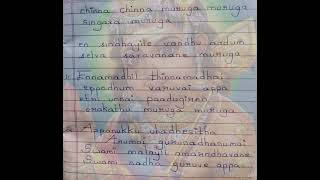 chinna chinna muruga muruga
singara muruga
en sindhayile vandhu aadum
selva saravanane muruga
Ennamadhil thinnamadhai
eppadhum varuvai appa
etri unnai paadugiren
orakathu muruga muruga
Appanukku ubadhesitha
Arumai gurunadhanumai
Swami malayil amarndhavane
Swami nadha guruve appa